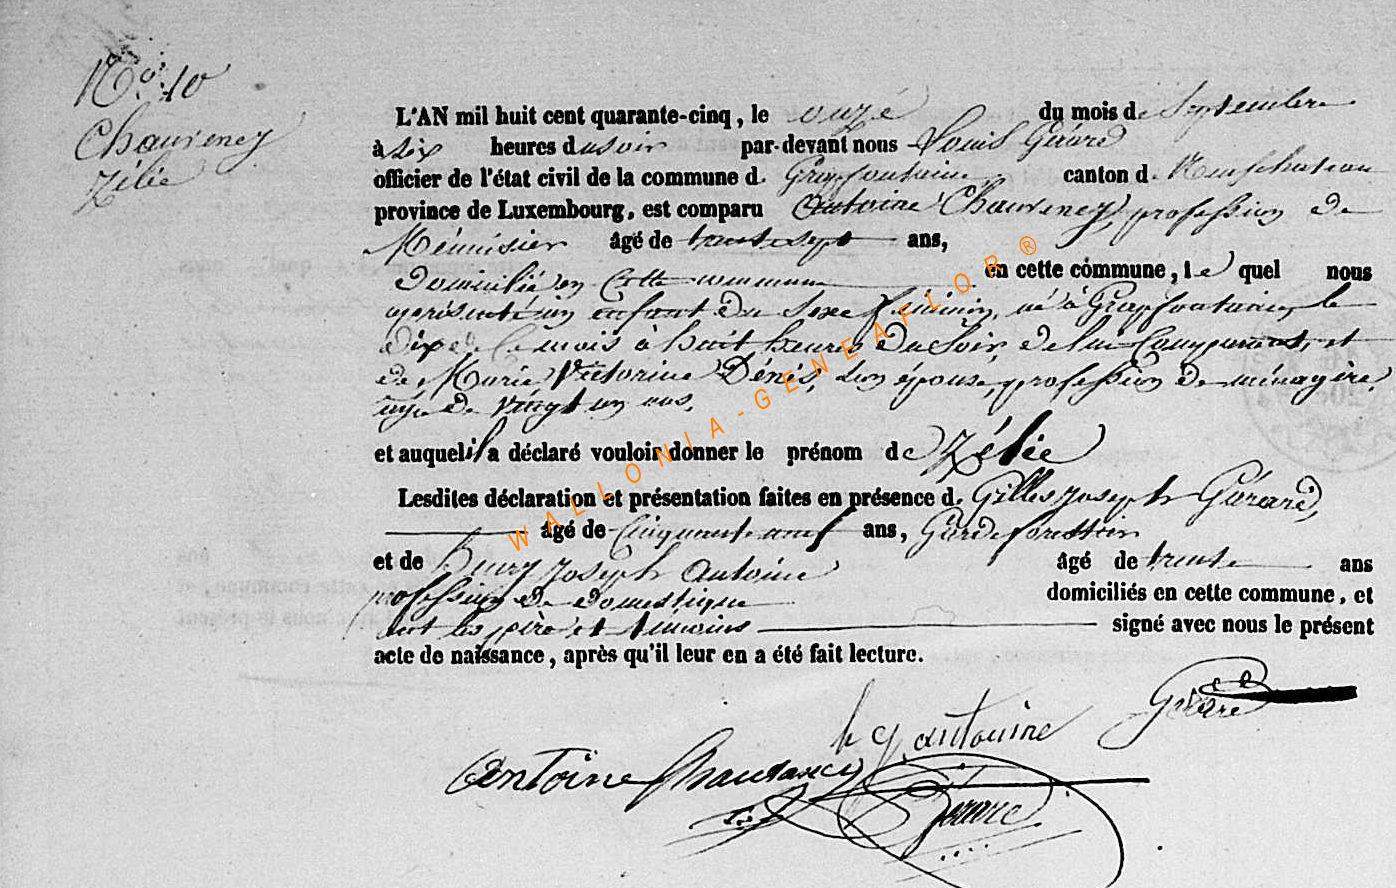 No. 10
Chauveney
Zélie
L'AN mil huit cent quarante-cinq, le onze du mois de Septembre
à six heures du soir par-devant nous Louis Gérard
officier de l'état civil de la commune d. Grapfontaine canton d. Neufchateau
province de Luxembourg, est comparu Antoine Chauveney, profession de
Ménuisier âgé de trente sept ans,
domicilié en cette commune en cette commune, le quel nous
a présenté un enfant du Sexe féminin, né à Grapfontaine le
dix de ce mois à huit heures du Soir, de lui Comparant, et
de Marie Victorine Dénis, son épouse, profession de ménagère
agée de vingt un ans.
et auquel il a déclaré vouloir donner le prénom de Zélie
Lesdites déclaration et présentation faites en présence d. Gilles Joseph Gérard,
âgé de Cinquante neuf ans, Garde forestier
et de Henry Joseph Antoine âgé de trente ans
profession de domestique domiciliés en cette commune, et
ont les père et témoins signé avec nous le présent
acte de naissance, après qu'il leur en a été fait lecture.
WALLONIA-GENEAFLOR®
h j antoine Gerard
Antoine Chauvancy
Gerard